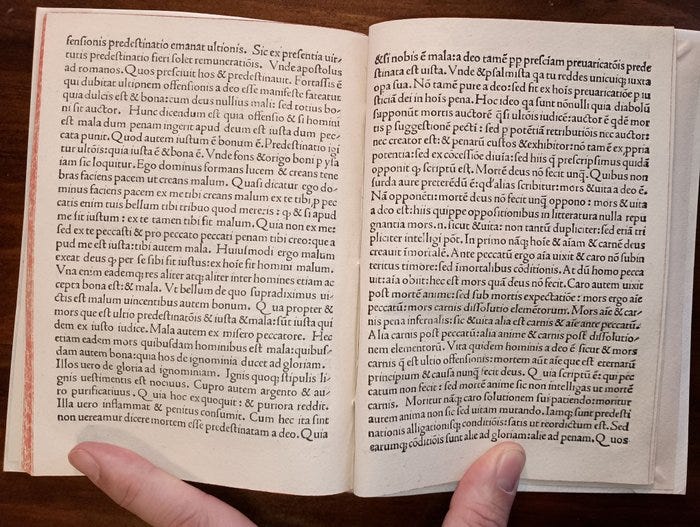 fensionis predestinatio emanat ultionis. Sic ex presentia uir-
tutis predestinatio fieri solet remuneratiõis. Vnde apostolus
ad romanos. Quos presciuit hos & predestinauit. Fortassis ẽ
qui dubitat ultionem offensionis a deo esse manifeste fateatur
quia dulcis est & bona: cum deus nullius mali: sed totius bo-
ni sit auctor. Hunc dicendum est quia offensio & si homini
est mala dum penam ingerit apud deum est iusta dum pec-
cata punit. Quod autem iustum ẽ bonum ẽ. Predestinatio igi
tur ultiõis: quia iusta ẽ & bona ẽ. Vnde fons & origo boni p ysa
iam sic loquitur. Ego dominus formans lucem & creans tene
bras faciens pacem ut creans malum. Quasi dicatur ego do-
minus faciens pacem ex me tibi creans malum ex te tibi, p pec
catis enim tuis bellum tibi tribuo quod mereris: q & si apud
me sit iustum: ex te tamen tibi fit malum. Quia non ex me:
sed ex te peccasti & pro peccato peccati penam tibi creo: que a
pud me est iusta: tibi autem mala. Huiusmodi ergo malum
exeat deus q per se sibi fit iustus: ex hoste fit homini malum.
Vna enim eademq; res aliter atq; aliter inter homines etiam ac
cepta bona est: & mala. Vt bellum de quo supradiximus ui-
ctis est malum uincentibus autem bonum. Qua propter &
mors que est ultio predestinatõis & iusta & mala: sũt iusta qui
dem ex iusto iudice. Mala autem ex misero peccatore. Hec
etiam eadem mors quibusdam hominibus est mala: quibus-
dam autem bona: quia hos de ignominia ducet ad gloriam.
Illos uero de gloria ad ignominiam. Ignis quoq; stipulis li-
gnis uestimentis est nocuus. Cupro autem argento & au-
ro purificatiuus. Quia hoc exquoquit: & puriora reddit.
Illa uero inflammat & penitus consumit. Cum hec ita sint
non uereamur dicere mortem esse predestinatam a deo. Quia
& si nobis ẽ mala: a deo tamẽ pp presciam preuaricatõis prede
stinata est iusta. Vnde & psalmista qa tu reddes unicuiq; iuxta
opa sua. Nõ tamẽ pure a deo: sed fit ex hois preuaricatiõe p iu
sticiã dei in hois pena. Hoc ideo qa sunt nõnulli quia diabolũ
supponũt mortis auctorẽ q̃ si ultõis iudicẽ: auctor ẽ qdẽ mor
tis p suggestionẽ pecti: sed p potẽtiã retributiõis nec auctor:
nec creator est: & penarũ custos & exhibitor: nõ tamẽ ex, ppria
potentia: sed ex cõcessiõe diuia: sed hiis q prescripsimus quidã
opponit q scriptũ est. Mortẽ deus nõ fecit unq. Quibus non
surda aure pretereũdũ ẽ: qd alias scribitur: mors & uita a deo ẽ.
Nã opponẽti: mortẽ deus nõ fecit unq oppono: mors & uita
a deo est: hiis quippe oppositionibus in litteratura nulla repu
gnantia mors. n. sicut & uita: non tantũ dupliciter: sed eriã tri
pliciter intelligi põt. In primo nãq; hoie & aiam & carnẽ deus
creauit imortalẽ. Ante peccatũ ergo aia uixit & caro nõ subin
teritus timore: sed imortalibus cõditionis. At dũ homo pecca
uit: aia obiit: hec est mors quã deus nõ fecit. Caro autem uixit
post mortẽ anime: sed sub mortis expectatiõe: mors ergo aie
peccatũ: mors carnis dissolutio elemẽtorum. Mors aie & car-
nis pena infernalis: sic & uita alia est carnis & aie ante peccatũ.
Alia carnis post peccatũ: alia anime & carnis post dissolutio-
nem elementorũ. Vita quidem hominis a deo ẽ sicut & mors
carnis q est ultio offensionis: mortem aũt aie que est eternarũ
principium & causa nunq fecit deus. Quia scriptũ ẽ: qui pec
catum non fecit: sed mortẽ anime sic non intelligas ut mortẽ
carnis. Moritur nãq; caro solutionem sui patiendo: moritur
autem anima non sic sed uitam mutando. Iamq; sunt predesti
nationis alligationisq; conditiõis: satis ut reor dictum est. Sed
earumq; cõditiõis sunt alie ad gloriam: alie ad penam. Quos